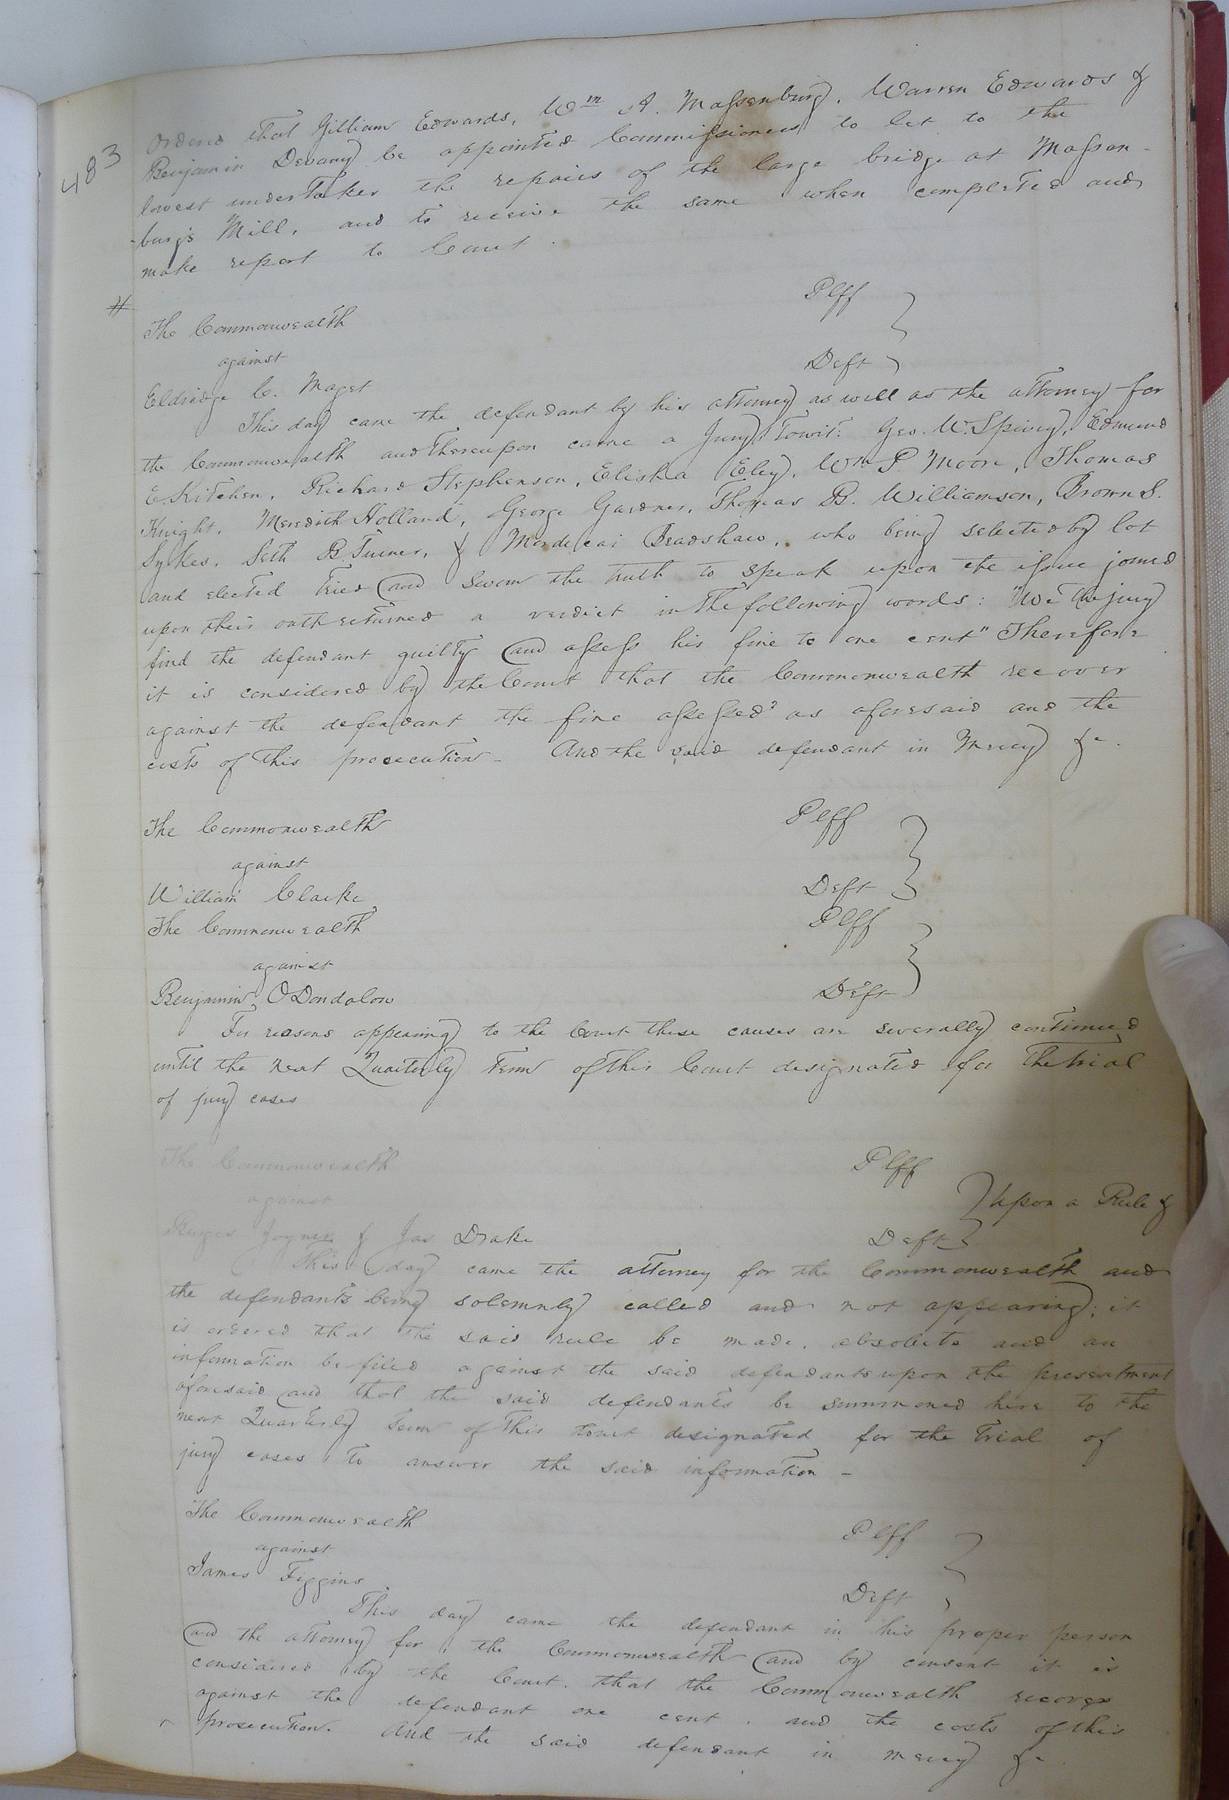 483
Ordered that Jilliam Edwards, Wm A. Massenburg, Warren Edwards &
Benjamin Devany be appointed Commissioners to let to the
lowest undertaker the repairs of the large bridge at Massen-
-burg's Mill, and to receive the same when completed and
make report to Court.
#
The Commonwealth Plff
against
Eldridge C. Maget Deft
This day came the defendant by his attorney as well as the attorney for
the Commonwealth and Thereupon came a Jury, Towit: Geo. W. Spivey, Edmund
E. Kitchen, Richard Stephenson, Elisha Eley, Wm P Moore, Thomas
Knight, Meredith Holland, George Gardner, Thomas B. Williamson, Brown S.
Sykes, Seth B Turner, & Mordecai Bradshaw, who being selected by lot
and elected tried and sworn the truth to speak upon the issue joined
upon their oath returned a verdict in The following words: "We the jury
find the defendant guilty and assess his fine to one cent" Therefore
it is considered by the Court that the Commonwealth recover
against the defendant the fine assessed as aforesaid and the
costs of this prosecution - And the said defendant in Mercy &c.
The Commonwealth Plff
against
William Clarke Deft
The Commonwealth Plff
against
Benjamin ODondalow Deft
For reasons appearing to the Court these causes are severally continued
until the next Quarterly Term of this Court designated for the trial
of jury cases
The Commonwealth Plff
against Upon a Rule &
Joyner & Jas Drake Deft
This day came the attorney for the Commonwealth and
the defendants being solemnly called and not appearing; it
is ordered that the said rule be made absolute and an
information be filed against the said defendants upon the presentment
aforesaid and that the said defendants be summoned here to the
next Quarterly term of this Court designated for the trial of
jury cases to answer the said information -
The Commonwealth Plff
against
James Figgins Deft
This day came the defendant in his proper person
and the attorney for the Commonwealth and by consent it is
considered by the Court that the Commonwealth recover
against the defendant one cent, and the costs of this
prosecution. And the said defendant in mercy &c